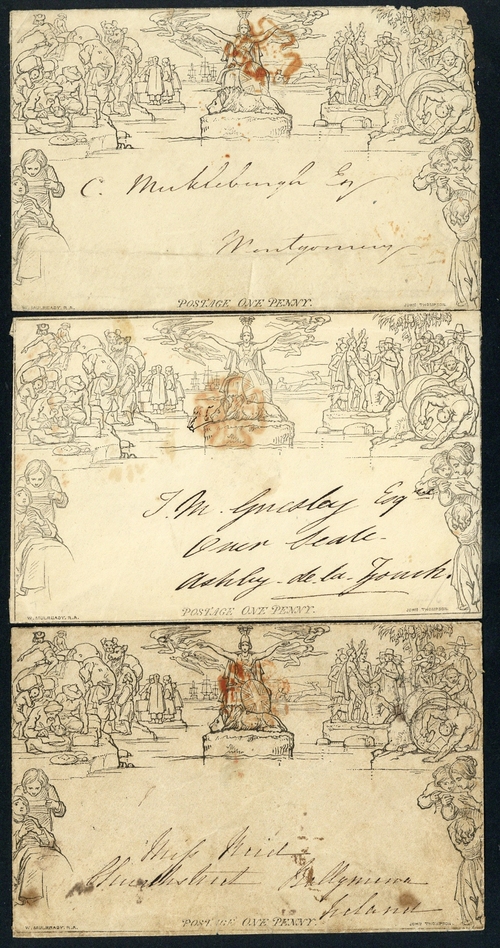 C. Mickleburgh Esq
Montgomery
W. MULREADY, R.A.
POSTAGE ONE PENNY.
JOHN THOMPSON
J. M. Gresley Esqre
Over Seale
Ashby-de-la-Zouch.
W. MULREADY, R.A.
POSTAGE ONE PENNY.
JOHN THOMPSON
Miss Reid
Church Street Ballymena
Ireland
W. MULREADY, R.A.
POSTAGE ONE PENNY.
JOHN THOMPSON